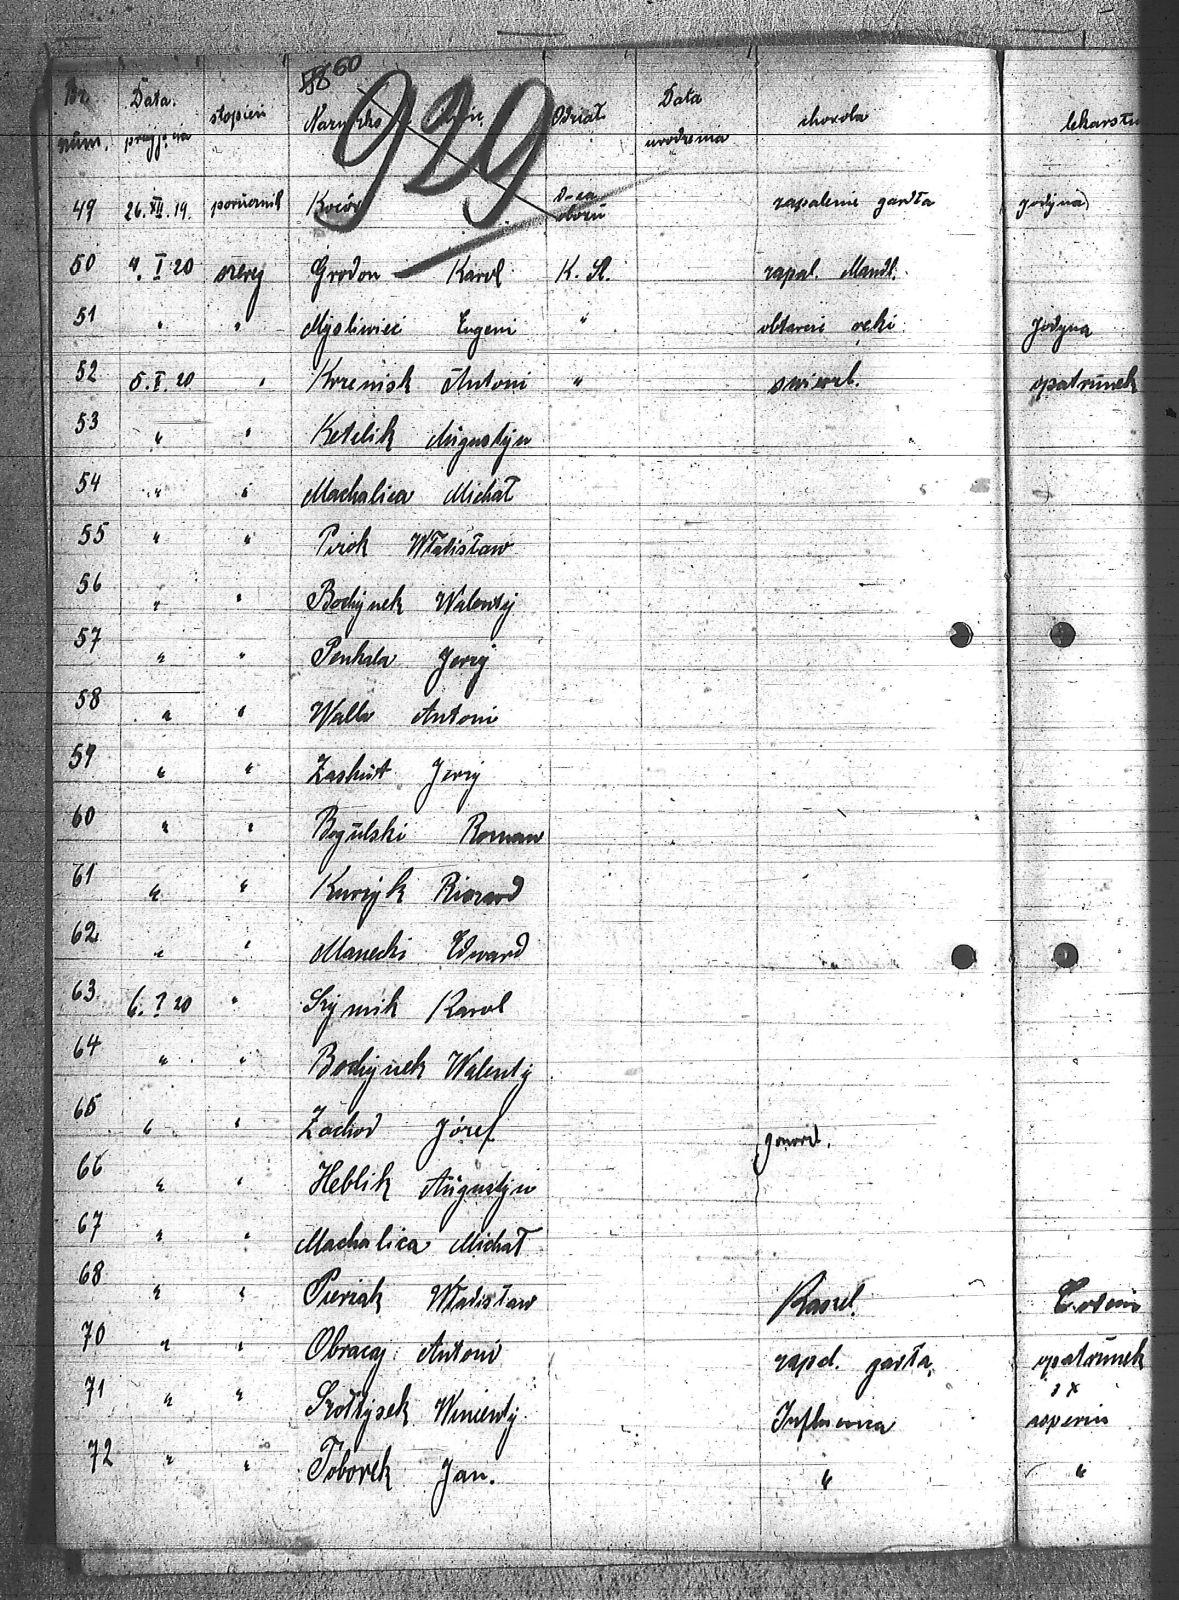 5860
929
Nr. Data stopień Nazwisko Imię Odział Data choroba lekarstw
num. przyjęcia urodzenia
49 26.XII.19. porucznik D-ca obozu zapalenie gardła jodyna
50 4. I 20 szereg Grodon Karol K. Sł. zapal. Mandl.
51 " " Myśliwieć Eugeni " obtarcie ręki jodyna
52 5. I 20 " Krzenisk Antoni " świerzb. opatrunek
53 " " Ketelik Augustyn
54 " " Machalica Michał
55 " " Pirok Władisław
56 " " Bochynek Walenty
57 " " Penkala Jerzy
58 " " Walla Antoni
59 " " Zaskut Jerzy
60 " " Bogulski Roman
61 " " Kurzyk Riszard
62 " " Manecki Edward
63 6. I 20 " Szymik Karol
64 " " Bochynek Walenty
65 " " Zachod Józef gonorrh.
66 " " Heblik Augustyn
67 " " Machalica Michał
68 " " Pieriak Władisław Kaszel.
70 " " Obracaj Antoni zapal. gardła, opatrunek
71 " " Szołtysek Wincenty Influenca
72 " " Toborek Jan. " "